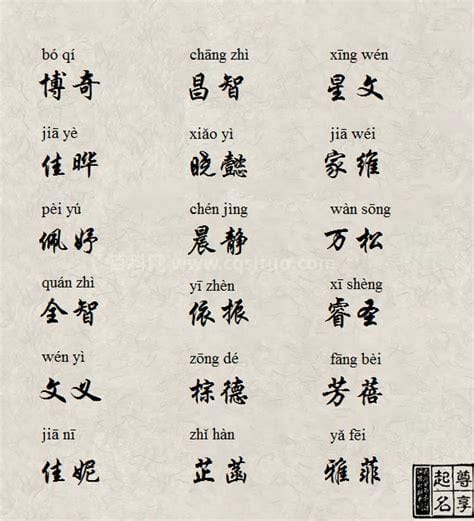 bó qí chāng zhì xīng wén
博奇 昌智 星文
jiā yè xiǎo yì jiā wéi
佳晔 晓懿 家维
pèi yú chén jìng wàn sōng
佩妤 晨静 万松
quán zhì yī zhèn xī shèng
全智 依振 睿圣
wén yì zōng dé fāng bèi
文义 棕德 芳蓓
jiā nī zhǐ hàn yǎ fēi
佳妮 芷菡 雅菲
尊享
起名